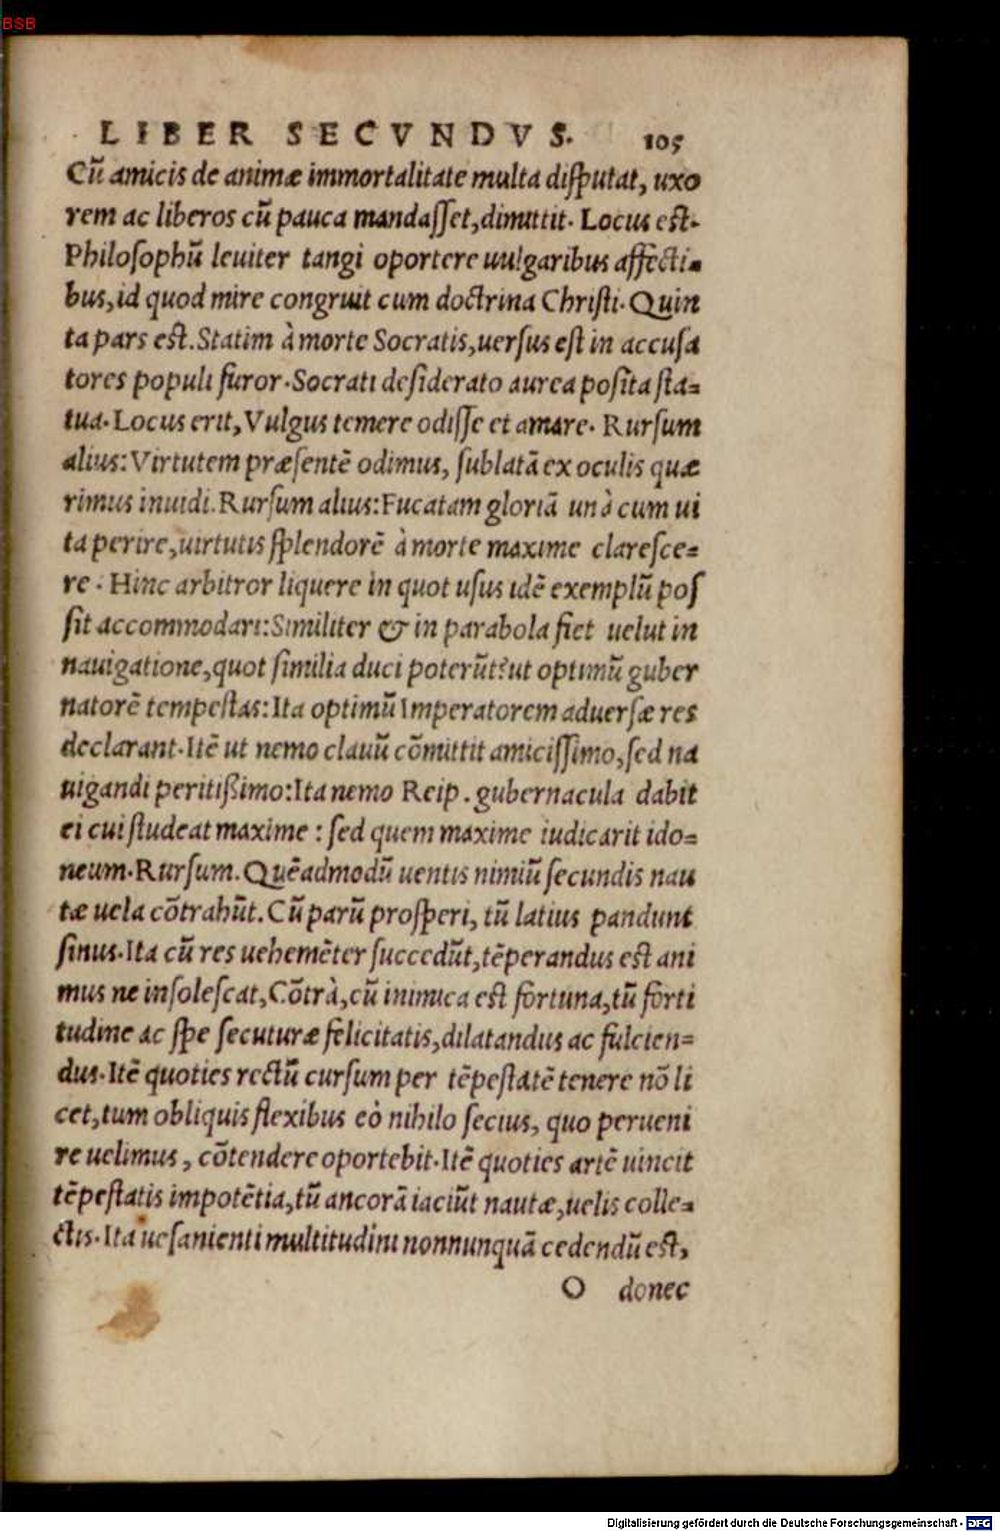 BSB
LIBER SECVNDVS. 105
Cũ amicis de animæ immortalitate multa diſputat, uxo
rem ac liberos cũ pauca mandaſſet, dimittit. Locus eſt.
Philoſophũ leuiter tangi oportere uulgaribus affecti-
bus, id quod mire congruit cum doctrina Chriſti. Quin
ta pars eſt. Statim à morte Socratis, uerſus eſt in accuſa
tores populi furor. Socrati deſiderato aurea poſita ſta=
tua. Locus erit, Vulgus temere odiſſe et amare. Rurſum
alius: Virtutem præſentẽ odimus, ſublatã ex oculis quæ
rimus inuidi. Rurſum alius: Fucatam gloriã unà cum ui
ta perire, uirtutis ſplendorẽ à morte maxime clareſce=
re. Hinc arbitror liquere in quot uſus idẽ exemplũ poſ
ſit accommodari: Similiter & in parabola fiet uelut in
nauigatione, quot ſimilia duci poterũt? ut optimũ guber
natorẽ tempeſtas: Ita optimũ Imperatorem aduerſæ res
declarant. Itẽ ut nemo clauũ cõmittit amiciſſimo, ſed na
uigandi peritißimo: Ita nemo Reip. gubernacula dabit
ei cui ſtudeat maxime: ſed quem maxime iudicarit ido=
neum. Rurſum. Quẽadmodũ uentis nimiũ ſecundis nau
tæ uela cõtrahũt. Cũ parũ proſperi, tũ latius pandunt
ſinus. Ita cũ res uehemẽter ſuccedũt, tẽperandus eſt ani
mus ne inſoleſcat, Cõtrà, cũ inimica eſt fortuna, tũ forti
tudine ac ſpe ſecuturæ felicitatis, dilatandus ac fulcien=
dus. Itẽ quoties rectũ curſum per tẽpeſtatẽ tenere nõ li
cet, tum obliquis flexibus eò nihilo ſecius, quo perueni
re uelimus, cõtendere oportebit. Itẽ quoties artẽ uincit
tẽpeſtatis impotẽtia, tũ ancorã iaciũt nautæ, uelis colle=
ctis. Ita ueſanienti multitudini nonnunquã cedendũ eſt,
O donec
Digitalisierung gefördert durch die Deutsche Forschungsgemeinschaft - DFG